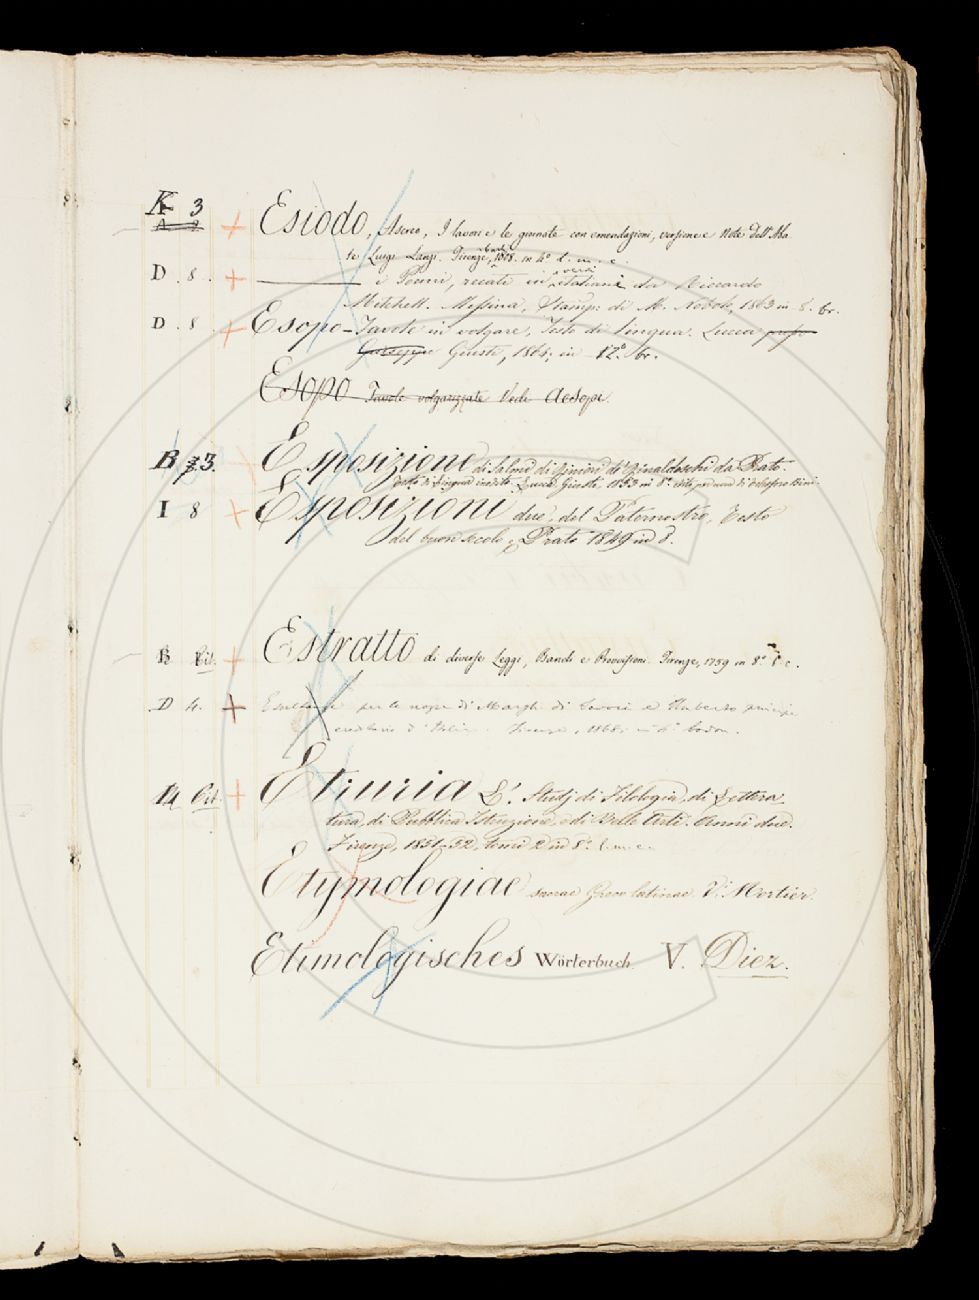 K 3
Esiodo, Ascreo, I lavori e le giornate con emendazioni, versione e Note dell'Aba
te Luigi Lanzi. Firenze, 1808. in 4° t. m. c.
D. 8. i Poemi, recati in versi italiani da Riccardo
Mitchell. Messina, Stamp: di M. Nobolo, 1863 in 8. br.
D. 8. Esopo - Favole in volgare, Testo di lingua. Lucca
Giuseppe Giusti, 1864. in 12° br.
Esopo Favole volgarizzate Vedi Aesopi.
B 3. Esposizione di Salmi di Simone da
Testo di Lingua inedito. Lucca Giusti, 1853 in 8°
I 8 Esposizioni due, del Paternostro, Testo
del buon secolo, Prato 1849 in 8.
B Cit. Estratto di diverse Leggi, Bandi e Provvisioni. Firenze, 1759 in 8° l. c.
D 4. per le nozze di Margh. di Savoia e Umberto principe
ereditario d'Italia. Firenze, 1868, in 4°
14 Cit. Etruria L'. Studj di Filologia, di Lettera
tura, di Pubblica Istruzione e di Belle Arti. Anni due.
Firenze, 1851-52, tomi 2 in 8°
Etymologiae sacrae Greco latinae. V. Mortier.
Etimologisches Wörterbuch. V. Diez.